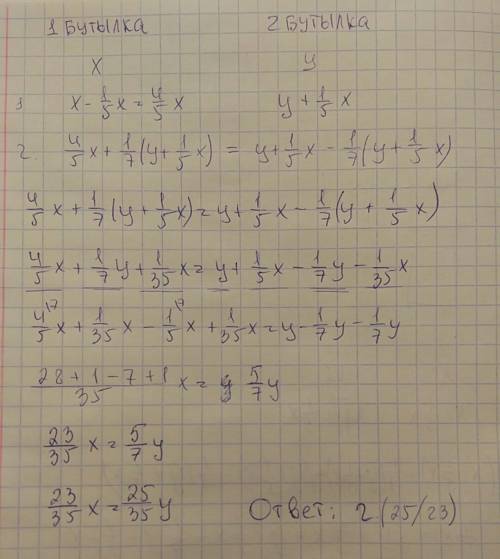 1 Бутылка 2 Бутылка
x y
1. x - 1/5 x = 4/5 x y + 1/5 x
2. 4/5 x + 1/7 (y + 1/5 x) = y + 1/5 x - 1/7 (y + 1/5 x)
4/5 x + 1/7 (y + 1/5 x) = y + 1/5 x - 1/7 (y + 1/5 x)
4/5 x + 1/7 y + 1/35 x = y + 1/5 x - 1/7 y - 1/35 x
4\7/5 x + 1/35 x - 1\7/5 x + 1/35 x = y - 1/7 y - 1/7 y
28 + 1 - 7 + 1/35 x = 5/7 y
23/35 x = 5/7 y
23/35 x = 25/35 y Ответ: 2 (25/23)